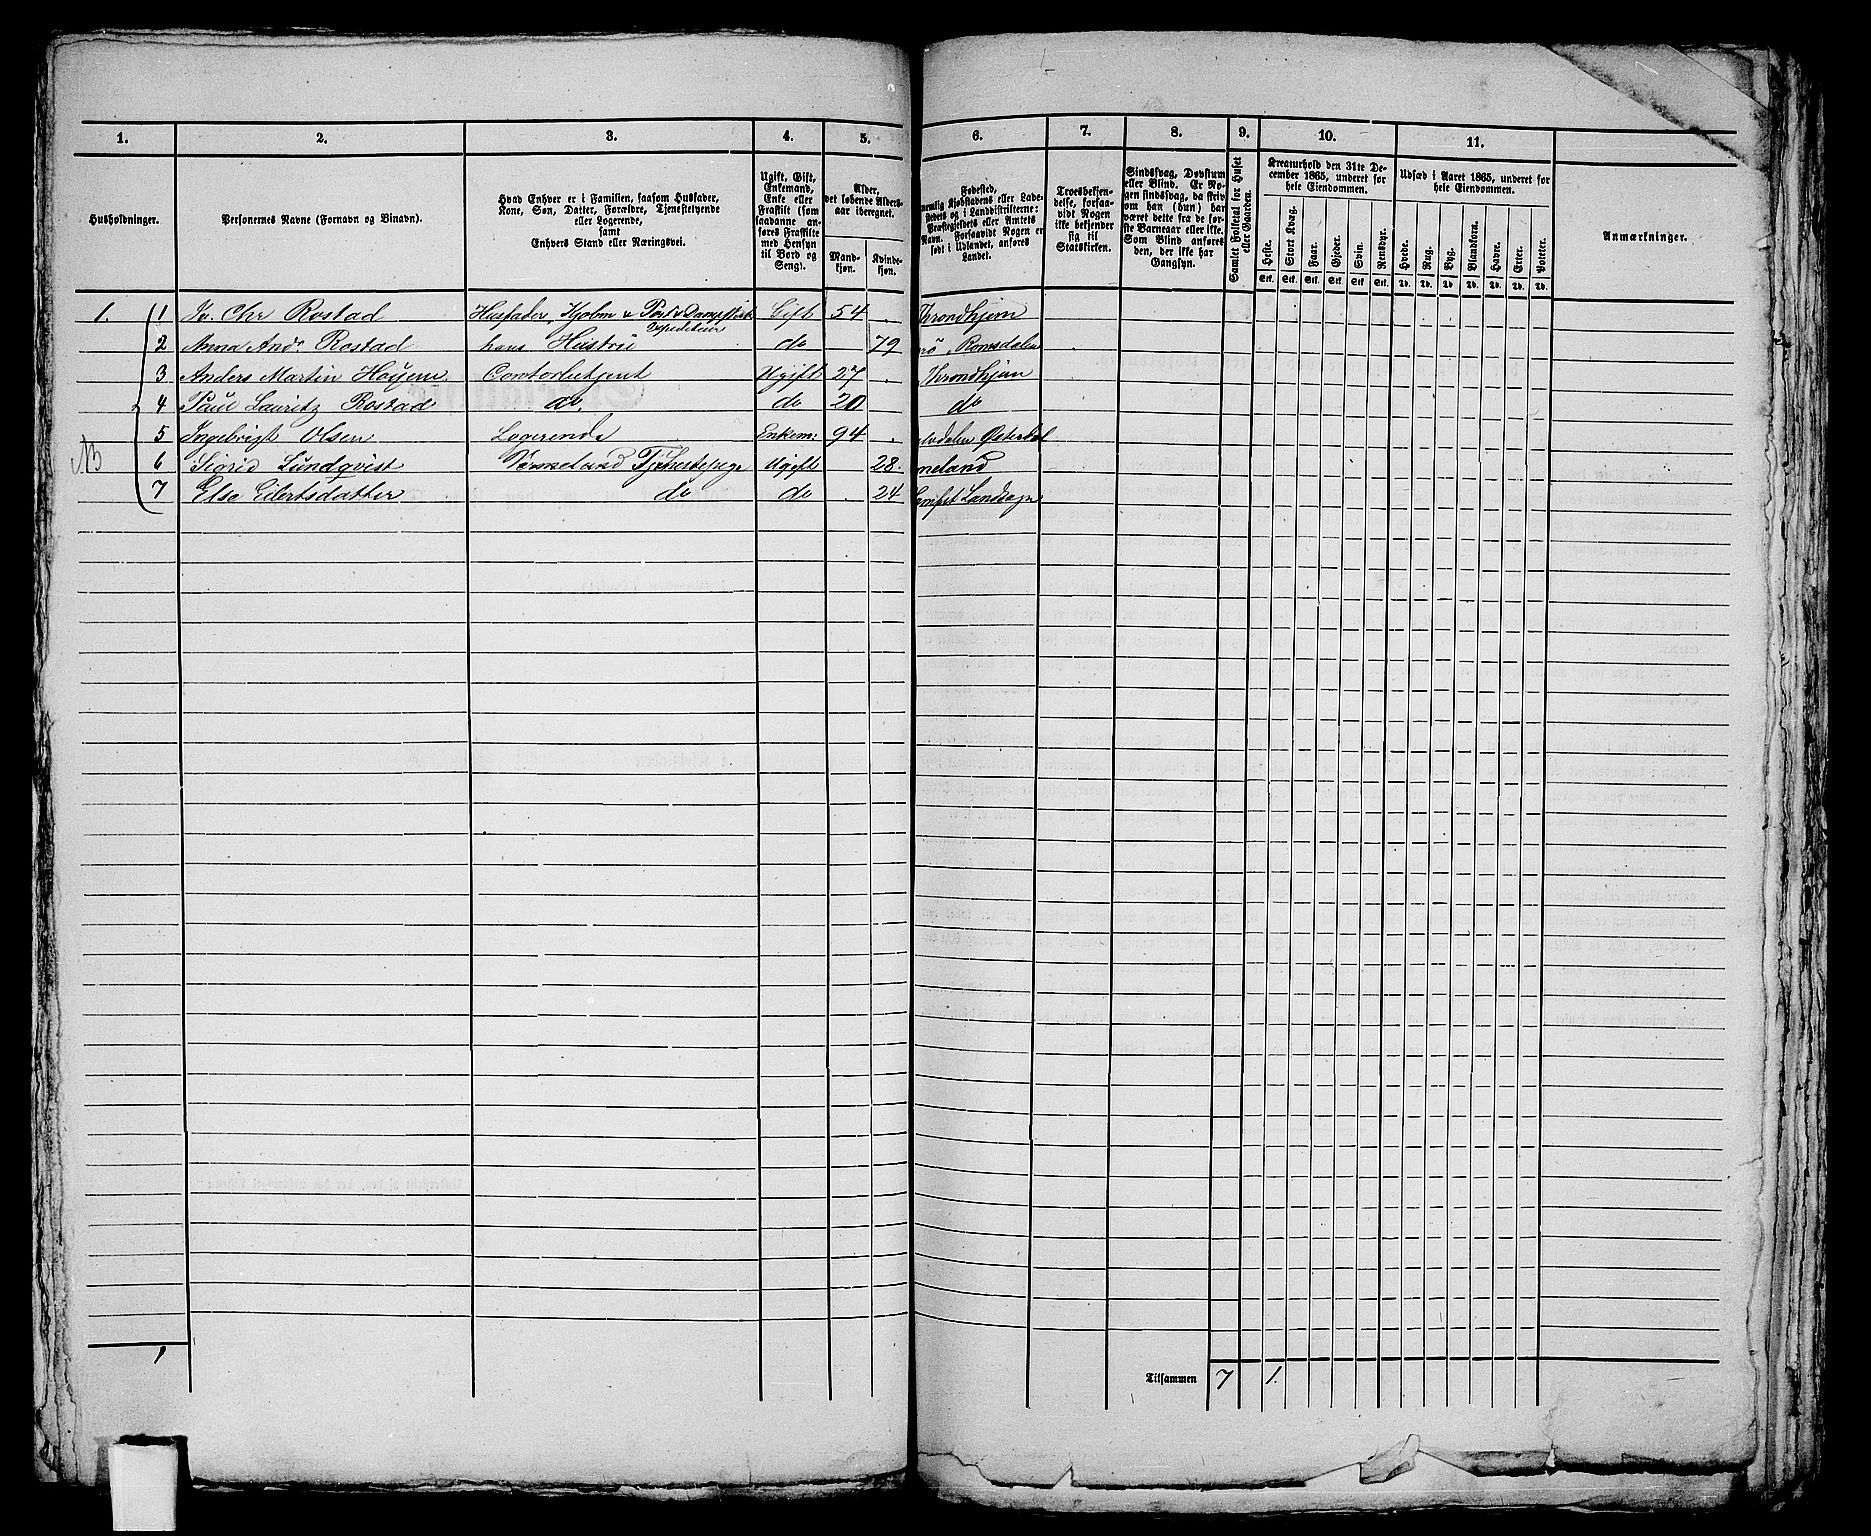 1. 2. 3. 4. 5. 6. 7. 8. 9. 10. 11.
Husholdninger.
Personernes Navne (Fornavn og Binavn).
Hvad Enhver er i Familien, saasom Husfader,
Kone, Søn, Datter, Forældre, Tjenestetyende
eller Logerende,
samt
Enhvers Stand eller Næringsvei.
Ugift, Gift,
Enkemand,
Enke eller
Fraskilt (som
saadanne an-
føres Fraskilte
med Hensyn
til Bord og
Seng).
Alder,
det løbende Alders-
aar iberegnet.
Mand-
kjøn.
Kvinde-
kjøn.
Fødested,
nemlig Kjøbstadens eller Lade-
stedets og i Landdistrikterne:
Præstegjeldets eller Amtets
Navn. Forsaavidt Nogen er
født i Udlandet, anføres
Landet.
Troesbekjen-
delse, forsaa-
vidt Nogen
ikke bekjender
sig til
Statskirken.
Sindssvag, Døvstum
eller Blind. Er No-
gen sindssvag, da skriv
om han (hun) har
været dette fra de før-
ste Barneaar eller ikke.
Som Blind anføres
den, der ikke har
Gangsyn.
Samlet Folketal for Huset
eller Gaarden.
Kreaturhold den 31te De-
cember 1865, underet for
hele Eiendommen.
Heste. Stort Kvæg. Faar. Gjeder. Svin. Rensdyr.
Stk. Stk. Stk. Stk. Stk. Stk.
Udsæd i Aaret 1865, underet for
hele Eiendommen.
Hvede. Rug. Byg. Blandkorn. Havre. Erter. Poteter.
Td. Td. Td. Td. Td. Td. Td.
Anmærkninger.
1. 1 Chr Rostad Husfader, Kjøbm & Post & Gift 54 Throndhjem
Expediteur
2 Anna And. Rostad hans Hustru do 79 Romsdalen
3 Anders Martin Høyem Contorbetjent Ugift 27 Throndhjem
4 Paul Lauritz Rostad do. do 20 do
5 Ingebrigt Olsen Logerende Enkem: 94 Østerdal
6 Sigrid Lundqvist Vermeland Ugift 28. meland
7 Else Eilertsdatter do do 24
1
Tilsammen 7 1.